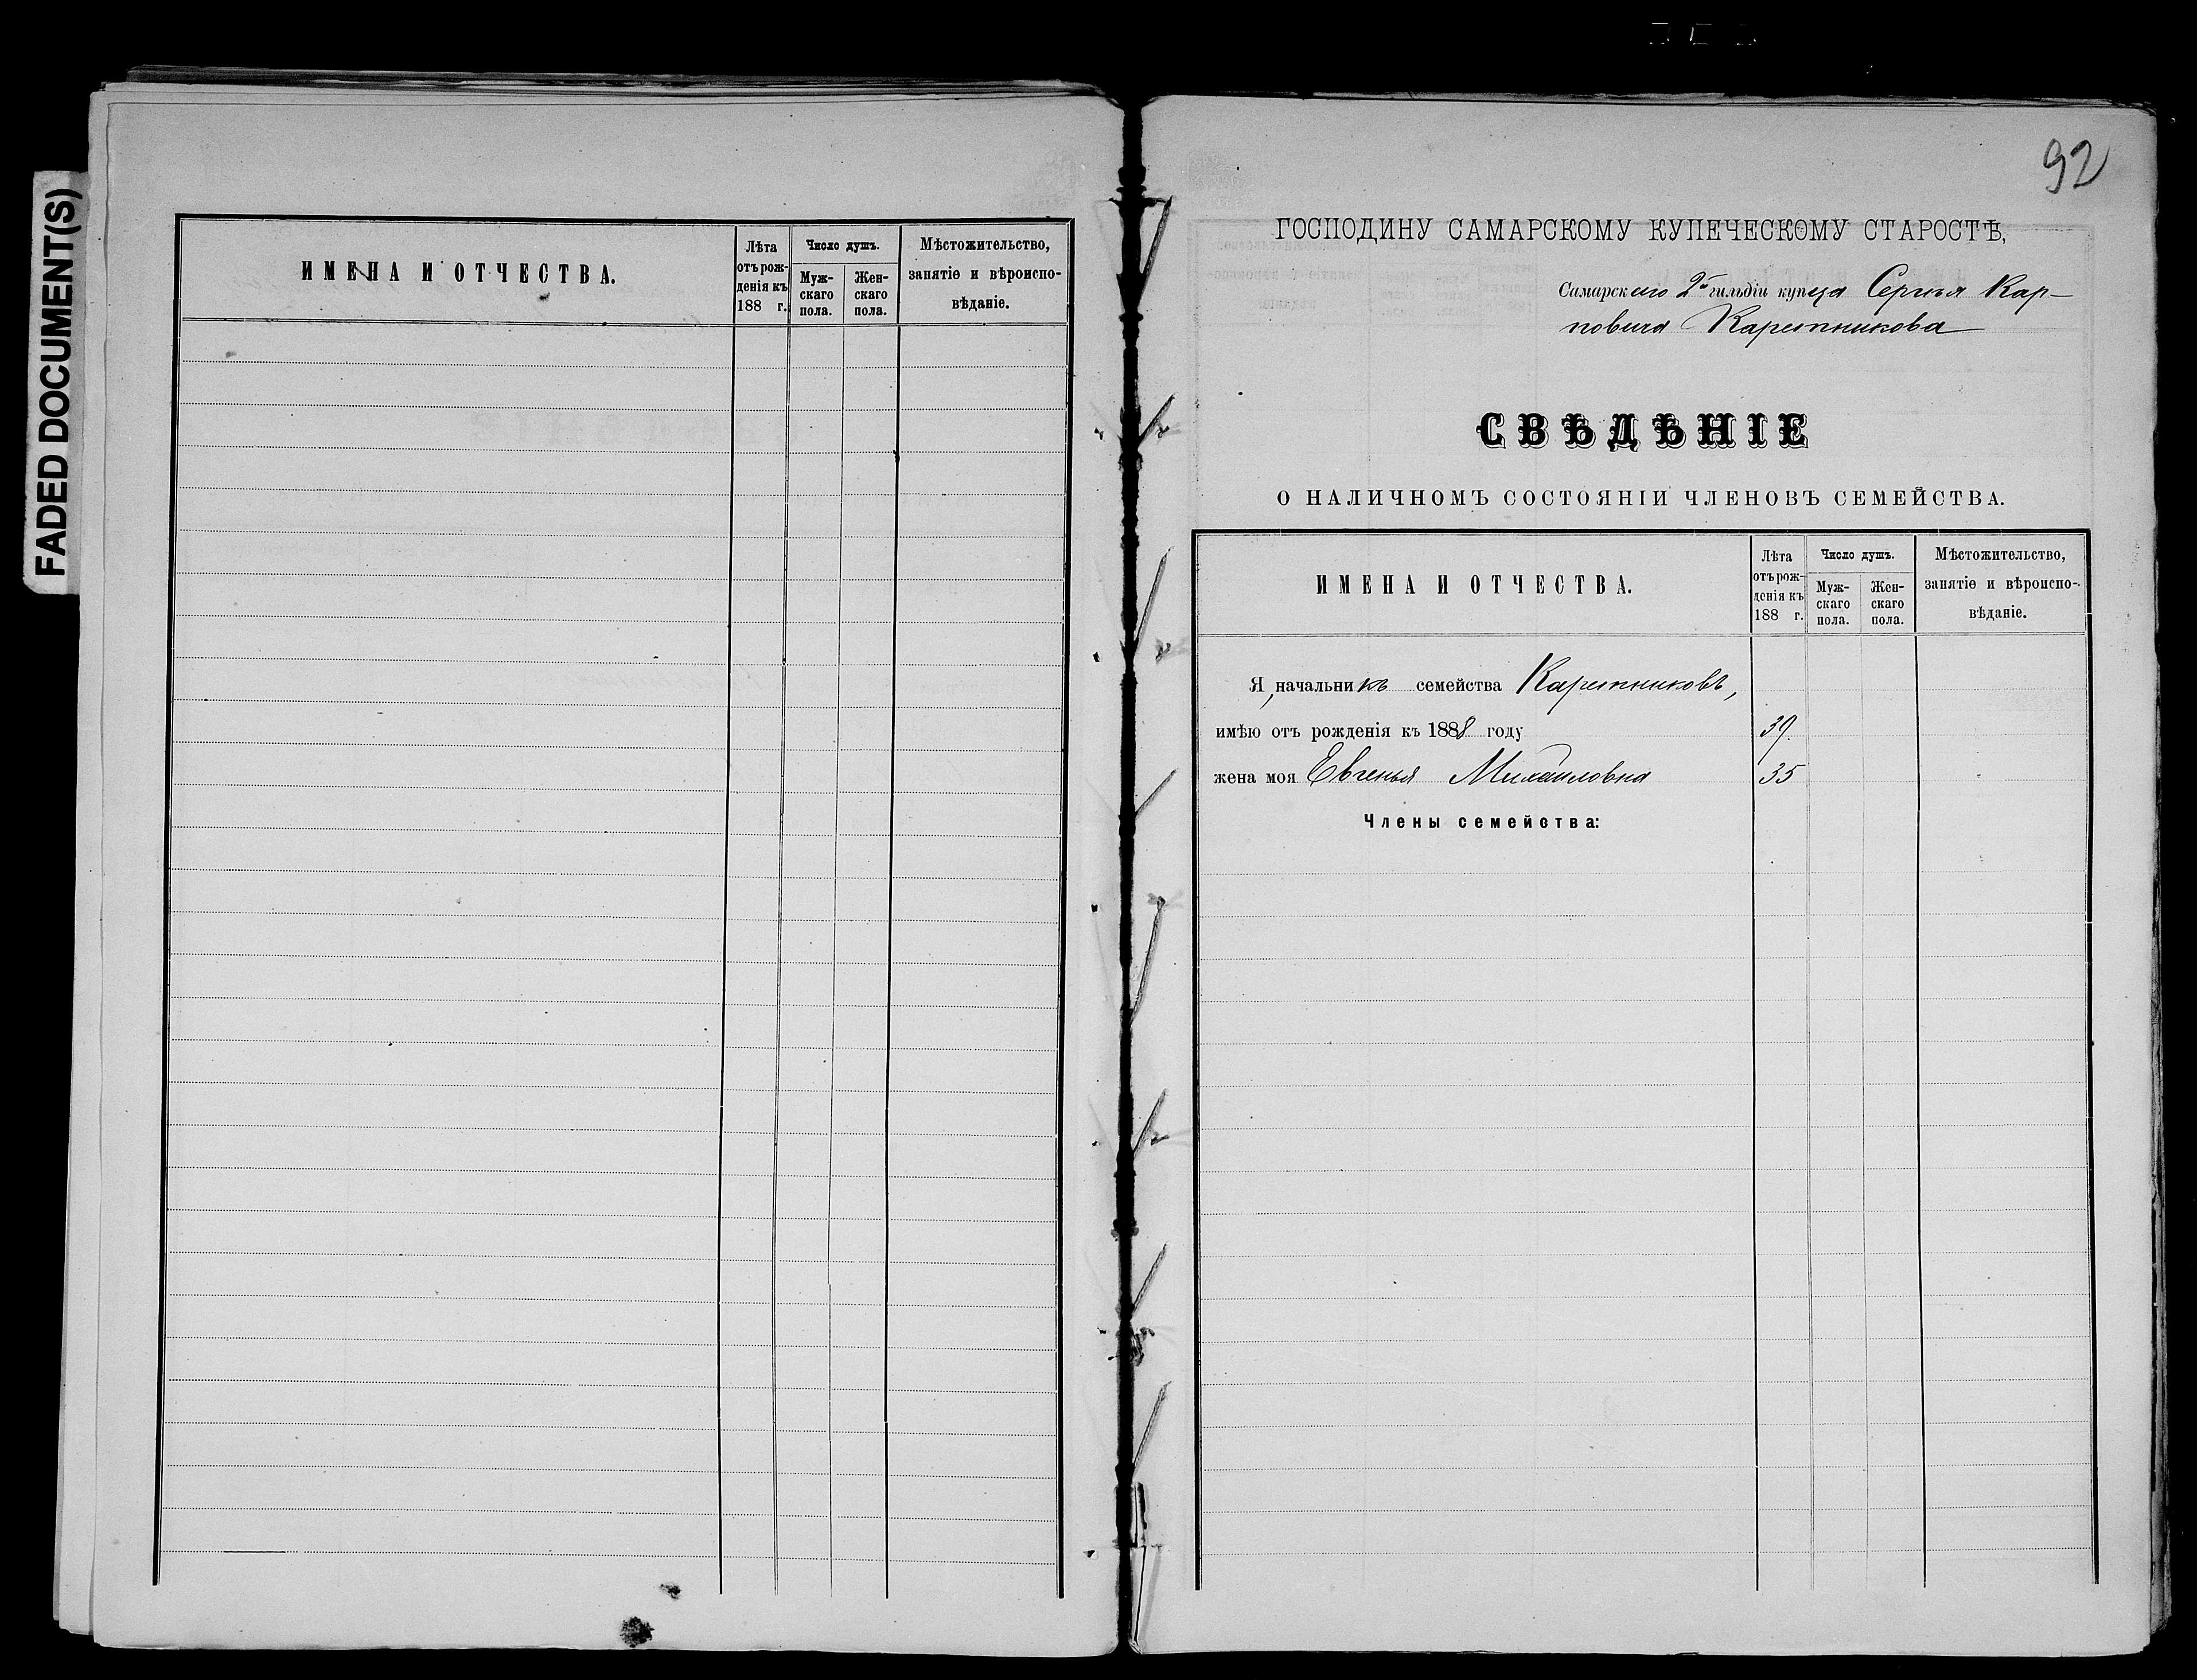 FADED DOCUMENT(S)
ИМЕНА И ОТЧЕСТВА.
Лѣта отъ рож-
денія къ
188 г.
Число душъ.
Муж-
скаго
пола.
Жен-
скаго
пола.
Мѣстожительство,
занятіе и вѣроиспо-
вѣданіе.
92
ГОСПОДИНУ САМАРСКОМУ КУПЕЧЕСКОМУ СТАРОСТѢ,
Самарскаго 2й гильдіи купеца Сергѣя Кар-
повича Каретникова
СВѢДѢНІЕ
О НАЛИЧНОМЪ СОСТОЯНІИ ЧЛЕНОВЪ СЕМЕЙСТВА.
ИМЕНА И ОТЧЕСТВА.
Лѣта
отъ рож-
денія къ
188 г.
Число душъ.
Муж-
скаго
пола.
Жен-
скаго
пола.
Мѣстожительство,
занятіе и вѣроиспо-
вѣданіе.
Я, начальникъ семейства Каретниковъ,
имѣю отъ рожденія къ 1888 году 39.
жена моя Евгенья Михаиловна 35
Члены семейства: